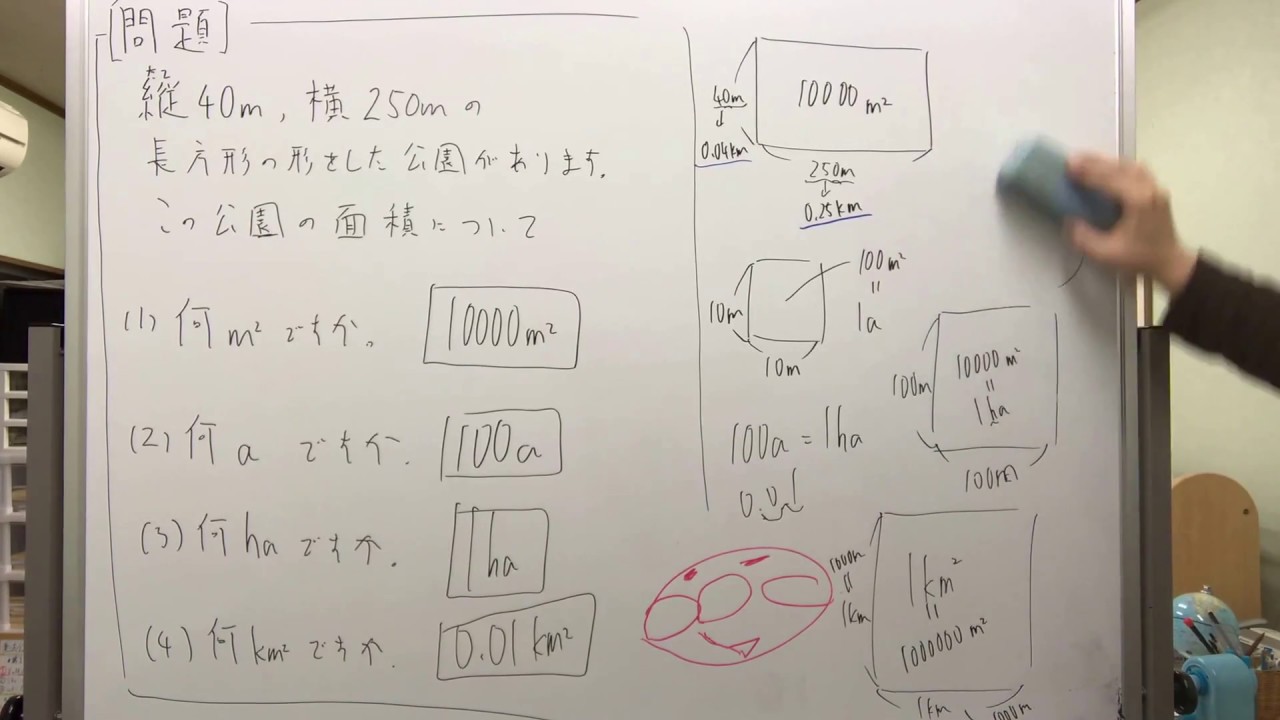 [問題]
たて
縦40m,横250mの
長方形の形をした公園があります.
この公園の面積について
(1)何m²ですか。 10000m²
(2)何aですか. 100a
(3)何haですか. 1ha
(4)何km²ですか. 0.01km²
10000m²
40m
↓
0.04km
250m
↓
0.25km
100m²
=
1a
10m
10m
10000m²
=
1ha
100m
100m
100a=1ha
0.01
1km²
=
1000000m²
1000m
=
1km
1km
1000m